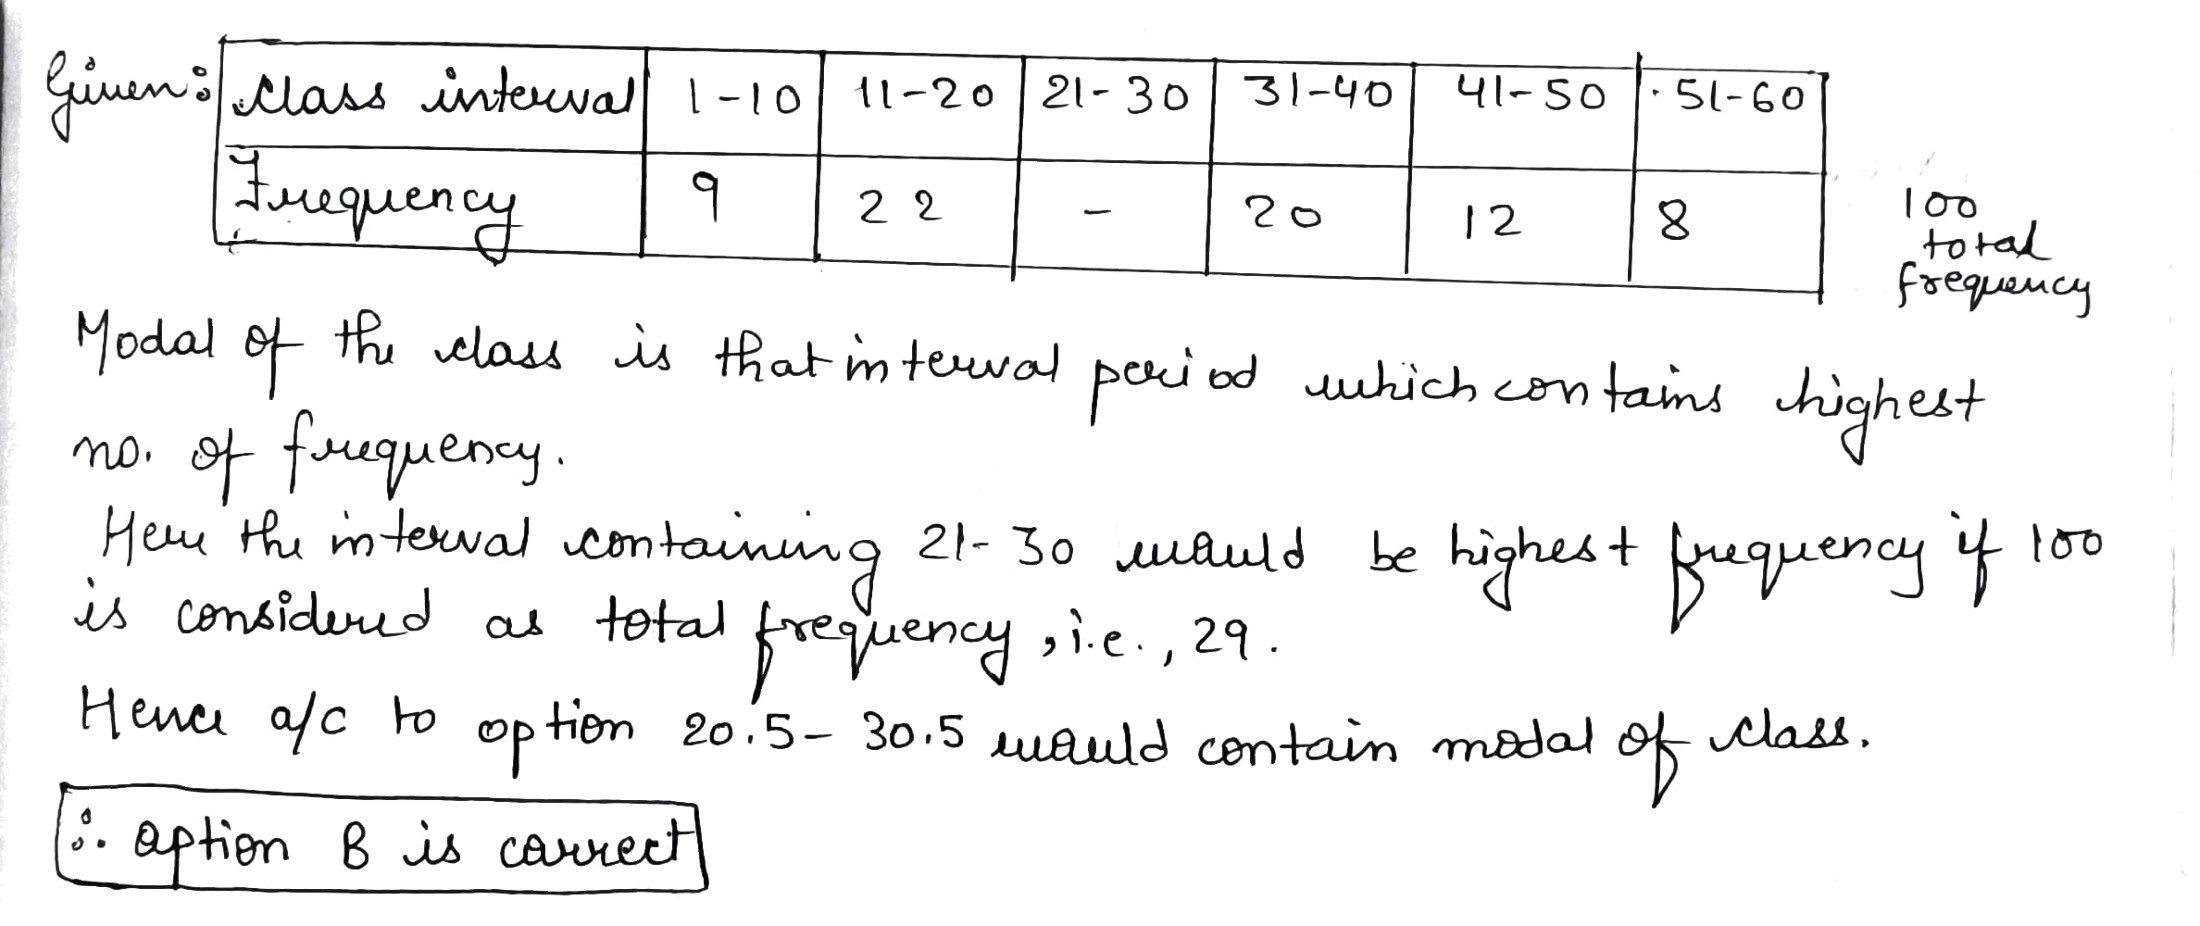 Given: Class interval 1-10 11-20 21-30 31-40 41-50 51-60
Frequency 9 22 - 20 12 8
100
total
frequency
Modal of the class is that interval period which contains highest
no. of frequency.
Here the interval containing 21-30 would be highest frequency if 100
is considered as total frequency, i.e., 29.
Hence a/c to option 20.5-30.5 would contain modal of class.
∴ option B is correct